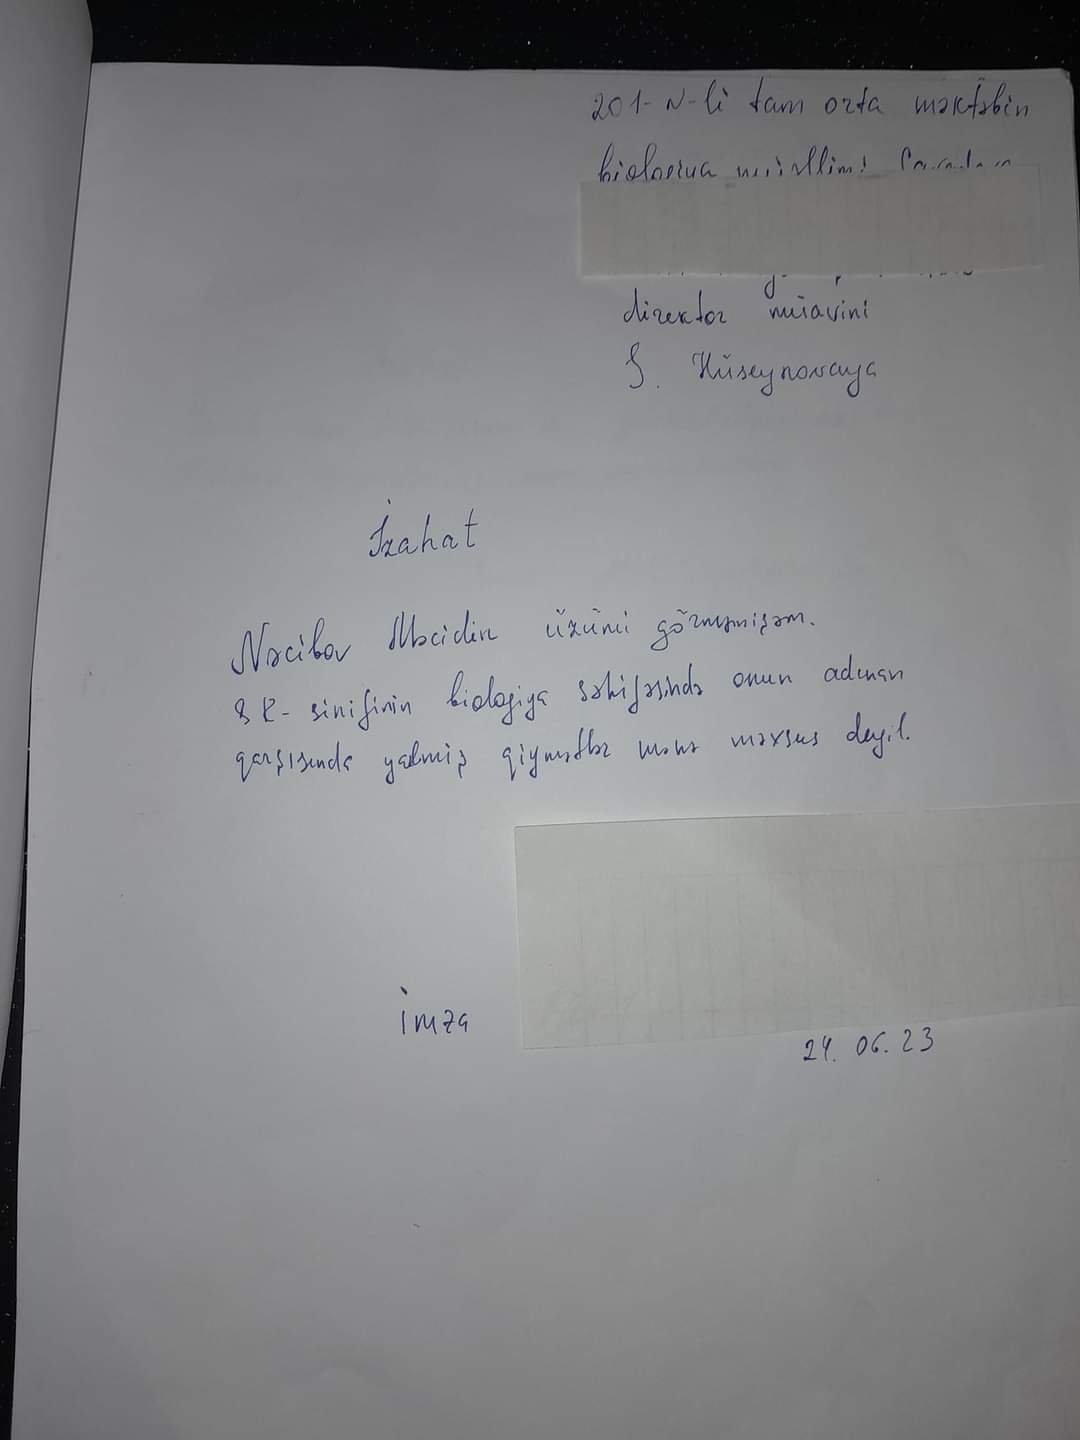 201-N-li tam orta məktəbin
biologiya müəllimi
direktor müavini
Ş. Hüseynovaya
İzahat
Nəcibov Məcidin üzünü görməmişəm.
8 K- sinifinin biologiya səhifəsində onun adının
qarşısında yazılmış qiymətlər mənə məxsus deyil.
İmza
24. 06. 23